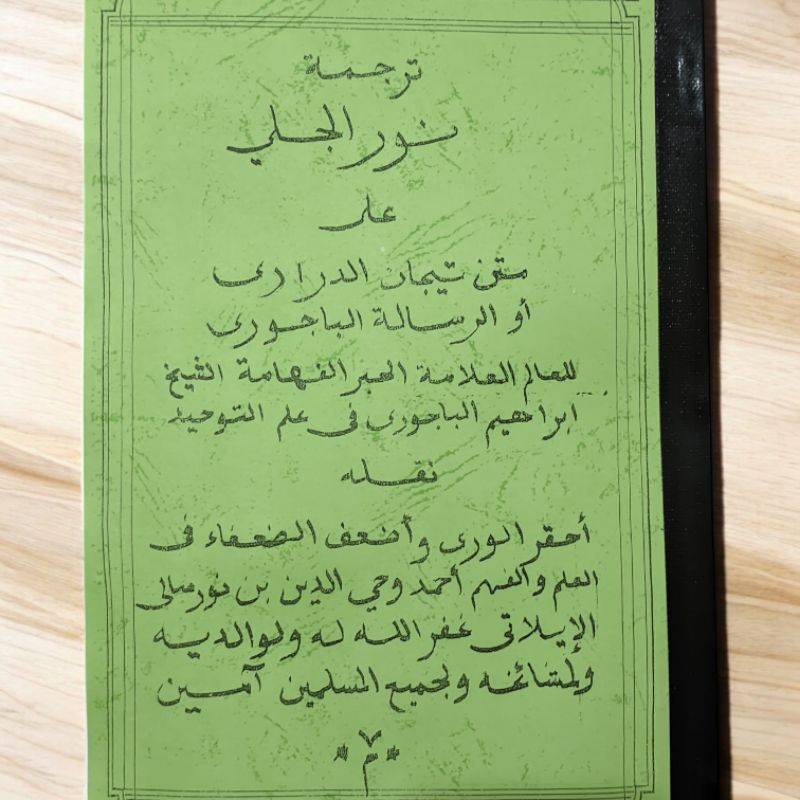 ترجمة
نور الجلي
على
متن تيجان الدرارى
أو الرسالة الباجورى
للعالم العلامة الحبر الفهامة الشيخ
ابراهيم الباجورى فى علم التوحيد
نقله
أحقر الورى وأضعف الضعفاء فى
العلم والفهم أحمد وحي الدين بن نورصالى
الإيلاتى غفر الله له ولوالديه
ولمشائخه ولجميع المسلمين آمين